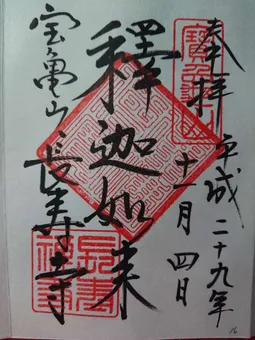 奉拝
平成二十九年
十一月四日
釋迦如来
宝亀山長寿寺